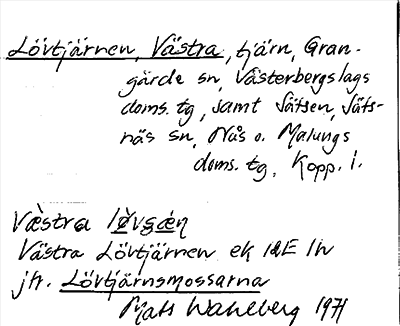 Lövtjärnen, Västra, tjärn, Gran-
gärde sn, Västerbergslags
doms. tg, samt Sätsen, Säfs-
näs sn, Nås o. Malungs
doms. tg, Kopp. l.
Væ̀stra
Västra Lövtjärnen ek
jfr. Lövtjärnsmossarna
Mats Wahlberg 1971